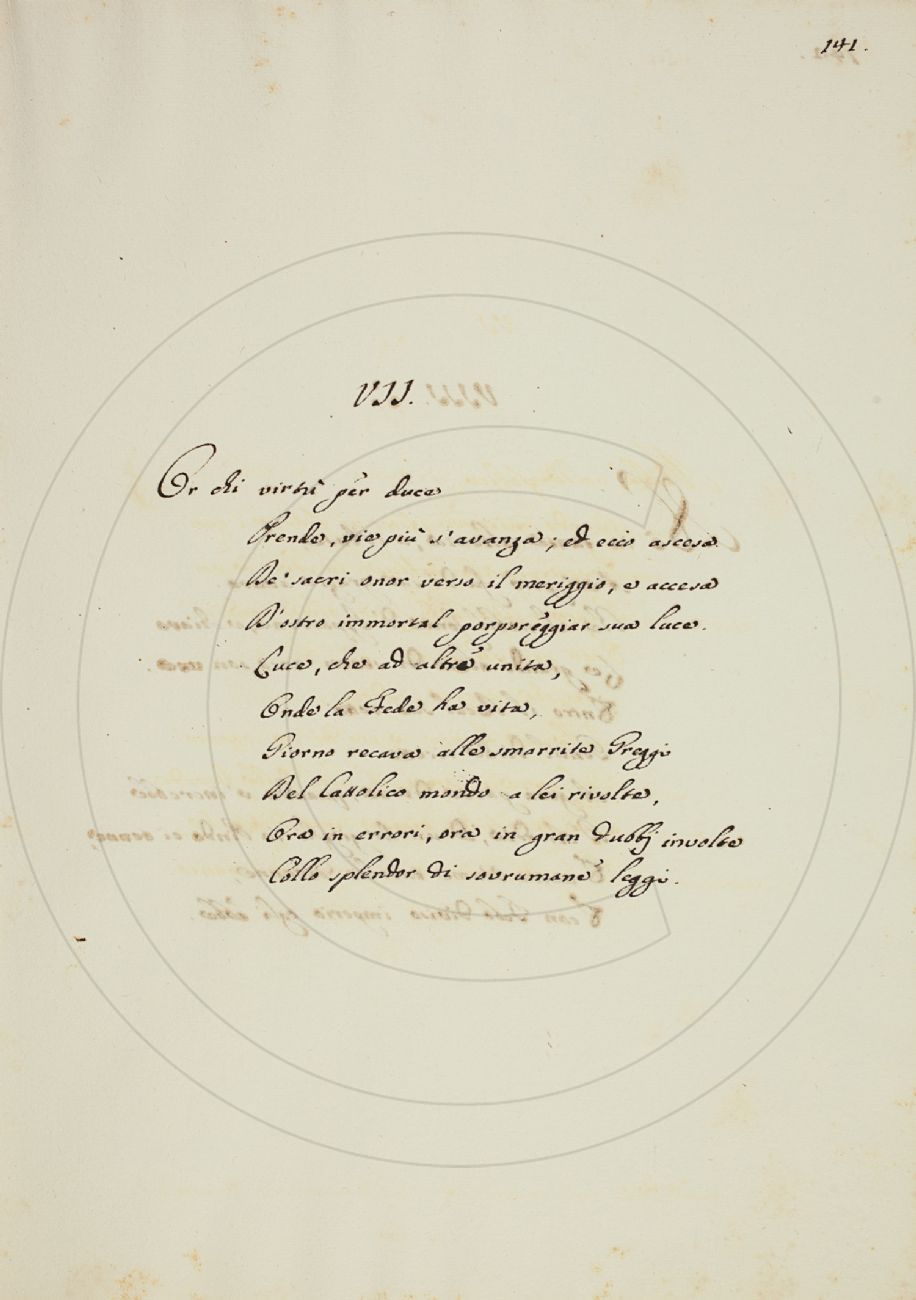 141.
VII.
Or chi virtù per duce
Prende, vie più s'avanza; ed ecco ascesa
De' sacri onor verso il meriggio, e accesa
D'ostro immortal porporeggiar sua luce.
Luce, che ad altre unita,
Onde la Fede ha vita,
Giorno recava alle smarrite Greggi
Del Cattolico mondo a lei rivolte,
Ora in errori, ora in gran dubbj involte
Collo splendor di sovrumane leggi.